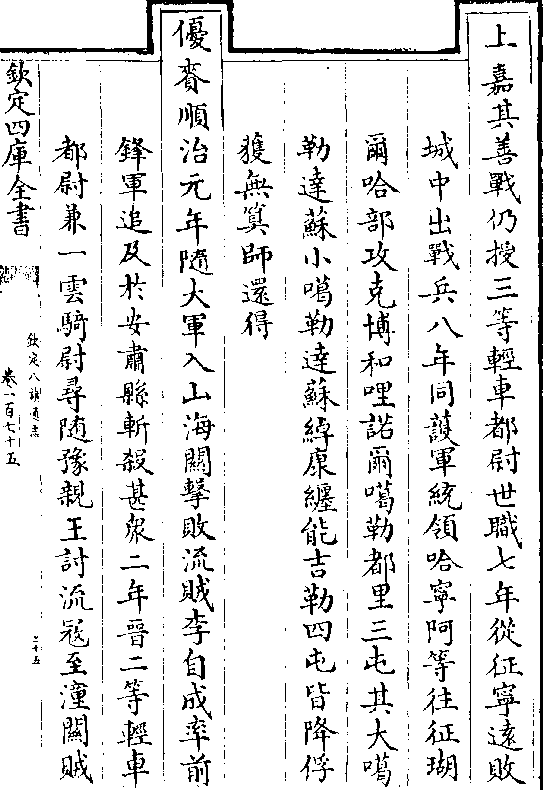 上嘉其善戰仍授三等輕車都尉世職七年從征寧遠敗
城中出戰兵八年同護軍統領哈寧阿等往征瑚
爾哈部攻克博和哩諾爾噶勒都里三屯其大噶
勒達蘇小噶勒達蘇綽庫纏能吉勒四屯皆降俘
獲無算師還得
優賚順治元年隨大軍入山海關擊敗流賊李自成率前
鋒軍追及於安肅縣斬殺甚衆二年晉二等輕車
都尉兼一雲騎尉尋隨豫親王討流寇至潼關賊
欽定四庫全書
欽定八旗通志
卷一百七十五
二十五